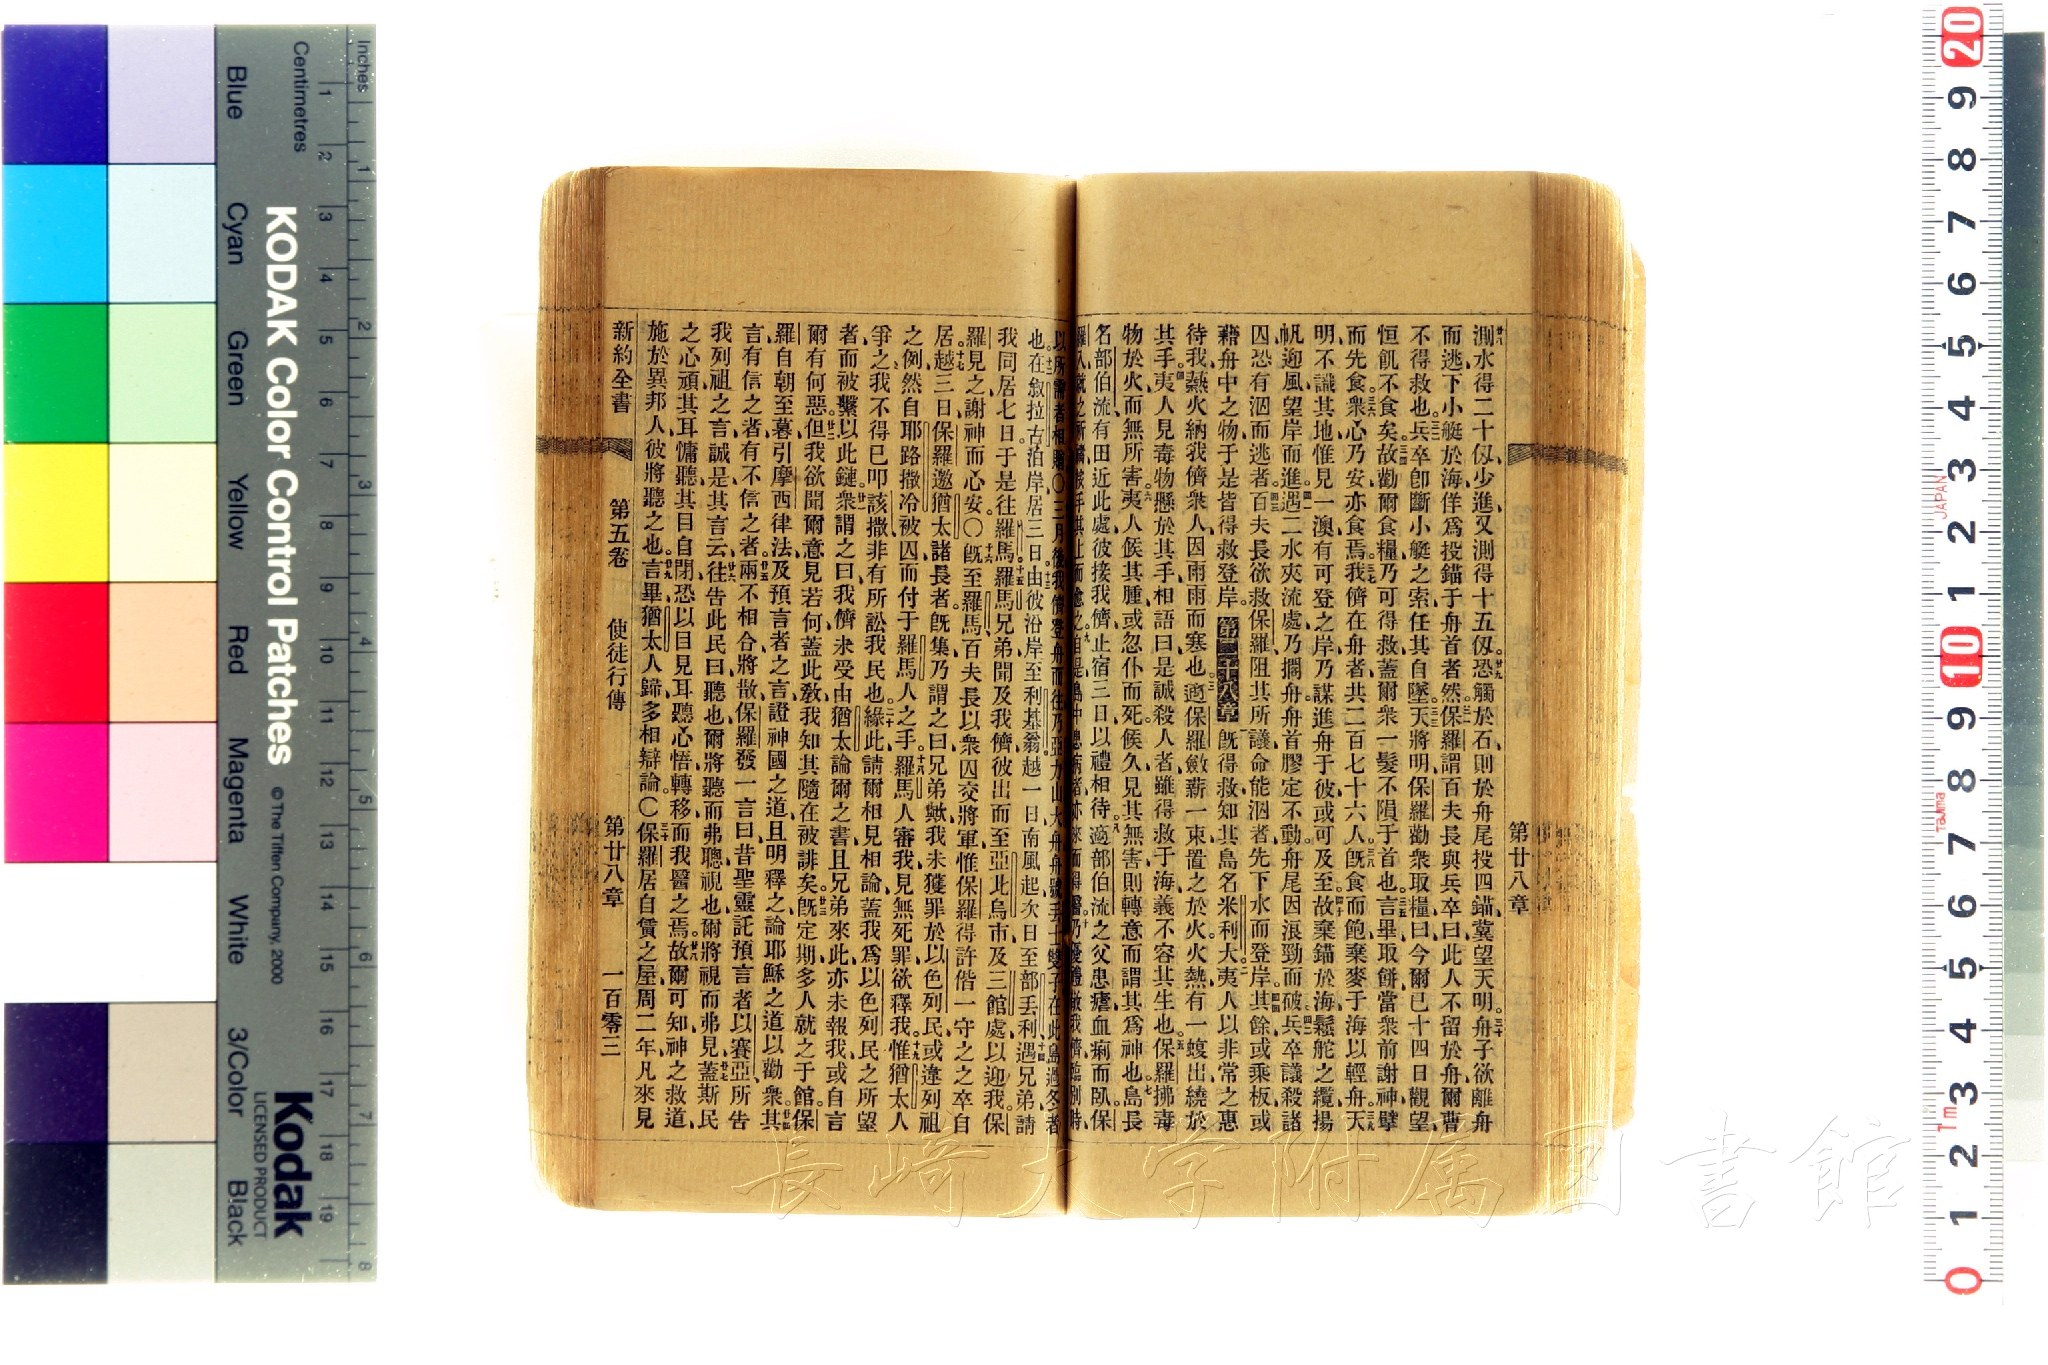 測水得二十仭少進又測得十五仭恐觸於石則於舟尾投四錨冀望天明舟子欲離舟
而逃下小艇於海佯爲投錨于舟首者然保羅謂百夫長與兵卒曰此人不留於舟爾曹
不得救也兵卒卽斷小艇之索任其自墜天將明保羅勸衆取糧曰今爾已十四日觀望
恒飢不食矣故勸爾食糧乃可得救蓋爾衆一髮不隕于首也言畢取餅當衆前謝神擘
而先食衆心乃安亦食焉我儕在舟者共二百七十六人旣食而飽棄麥于海以輕舟天
明不識其地惟見一澳有可登之岸乃謀進舟于彼或可及至故棄錨於海鬆舵之纜揚
帆迎風望岸而進遇二水夾流處乃擱舟舟首膠定不動舟尾因浪勁而破兵卒議殺諸
囚恐有泅而逃者百夫長欲救保羅阻其所議命能泅者先下水而登岸其餘或乘板或
藉舟中之物于是皆得救登岸第二十八章旣得救知其島名米利大夷人以非常之惠
待我爇火納我儕衆人因雨雨而寒也適保羅斂薪一束置之於火火熱有一蝮出繞於
其手夷人見毒物懸於其手相語曰是誠殺人者雖得救于海義不容其生也保羅拂毒
物於火而無所害夷人候其腫或忽仆而死候久見其無害則轉意而謂其爲神也島長
名部伯流有田近此處彼接我儕止宿三日以禮相待適部伯流之父患瘧血痢而臥保
以所需者相贈〇三月後我儕登舟而往乃亞力山大舟舟號丢士雙子在此島過冬者
也在叙拉古泊岸居三日由彼沿岸至利基翁越一日南風起次日至部丢利遇兄弟請
我同居七日于是往羅馬羅馬兄弟聞及我儕彼出而至亞比烏市及三館處以迎我保
羅見之謝神而心安〇旣至羅馬百夫長以衆囚交將軍惟保羅得許偕一守之之卒自
居越三日保羅邀猶太諸長者旣集乃謂之曰兄弟歟我未獲罪於以色列民或違列祖
之例然自耶路撒冷被囚而付于羅馬人之手羅馬人審我見無死罪欲釋我惟猶太人
爭之我不得已叩該撒非有所訟我民也緣此請爾相見相論蓋我爲以色列民之所望
者而被繫以此鏈衆謂之曰我儕未受由猶太論爾之書且兄弟來此亦未報我或自言
爾有何惡但我欲聞爾意見若何蓋此敎我知其隨在被誹矣旣定期多人就之于館保
羅自朝至暮引摩西律法及預言者之言證神國之道且明釋之論耶穌之道以勸衆其
言有信之者有不信之者兩不相合將散保羅發一言曰昔聖靈託預言者以賽亞所告
我列祖之言誠是其言云往告此民曰聽也爾將聽而弗聰視也爾將視而弗見蓋斯民
之心頑其耳慵聽其目自閉恐以目見耳聽心悟轉移而我醫之焉故爾可知神之救道
施於異邦人彼將聽之也言畢猶太人歸多相辯論〇保羅居自賃之屋周二年凡來見
新約全書　第五卷　使徒行傳　第廿八章　一百零三
第廿八章
Inches
Centimetres
KODAK Color Control Patches © The Tiffen Company, 2000
Kodak
LICENSED PRODUCT
Blue Cyan Green Yellow Red Magenta White 3/Color Black
JAPAN
Tajima
長崎大学附属図書館